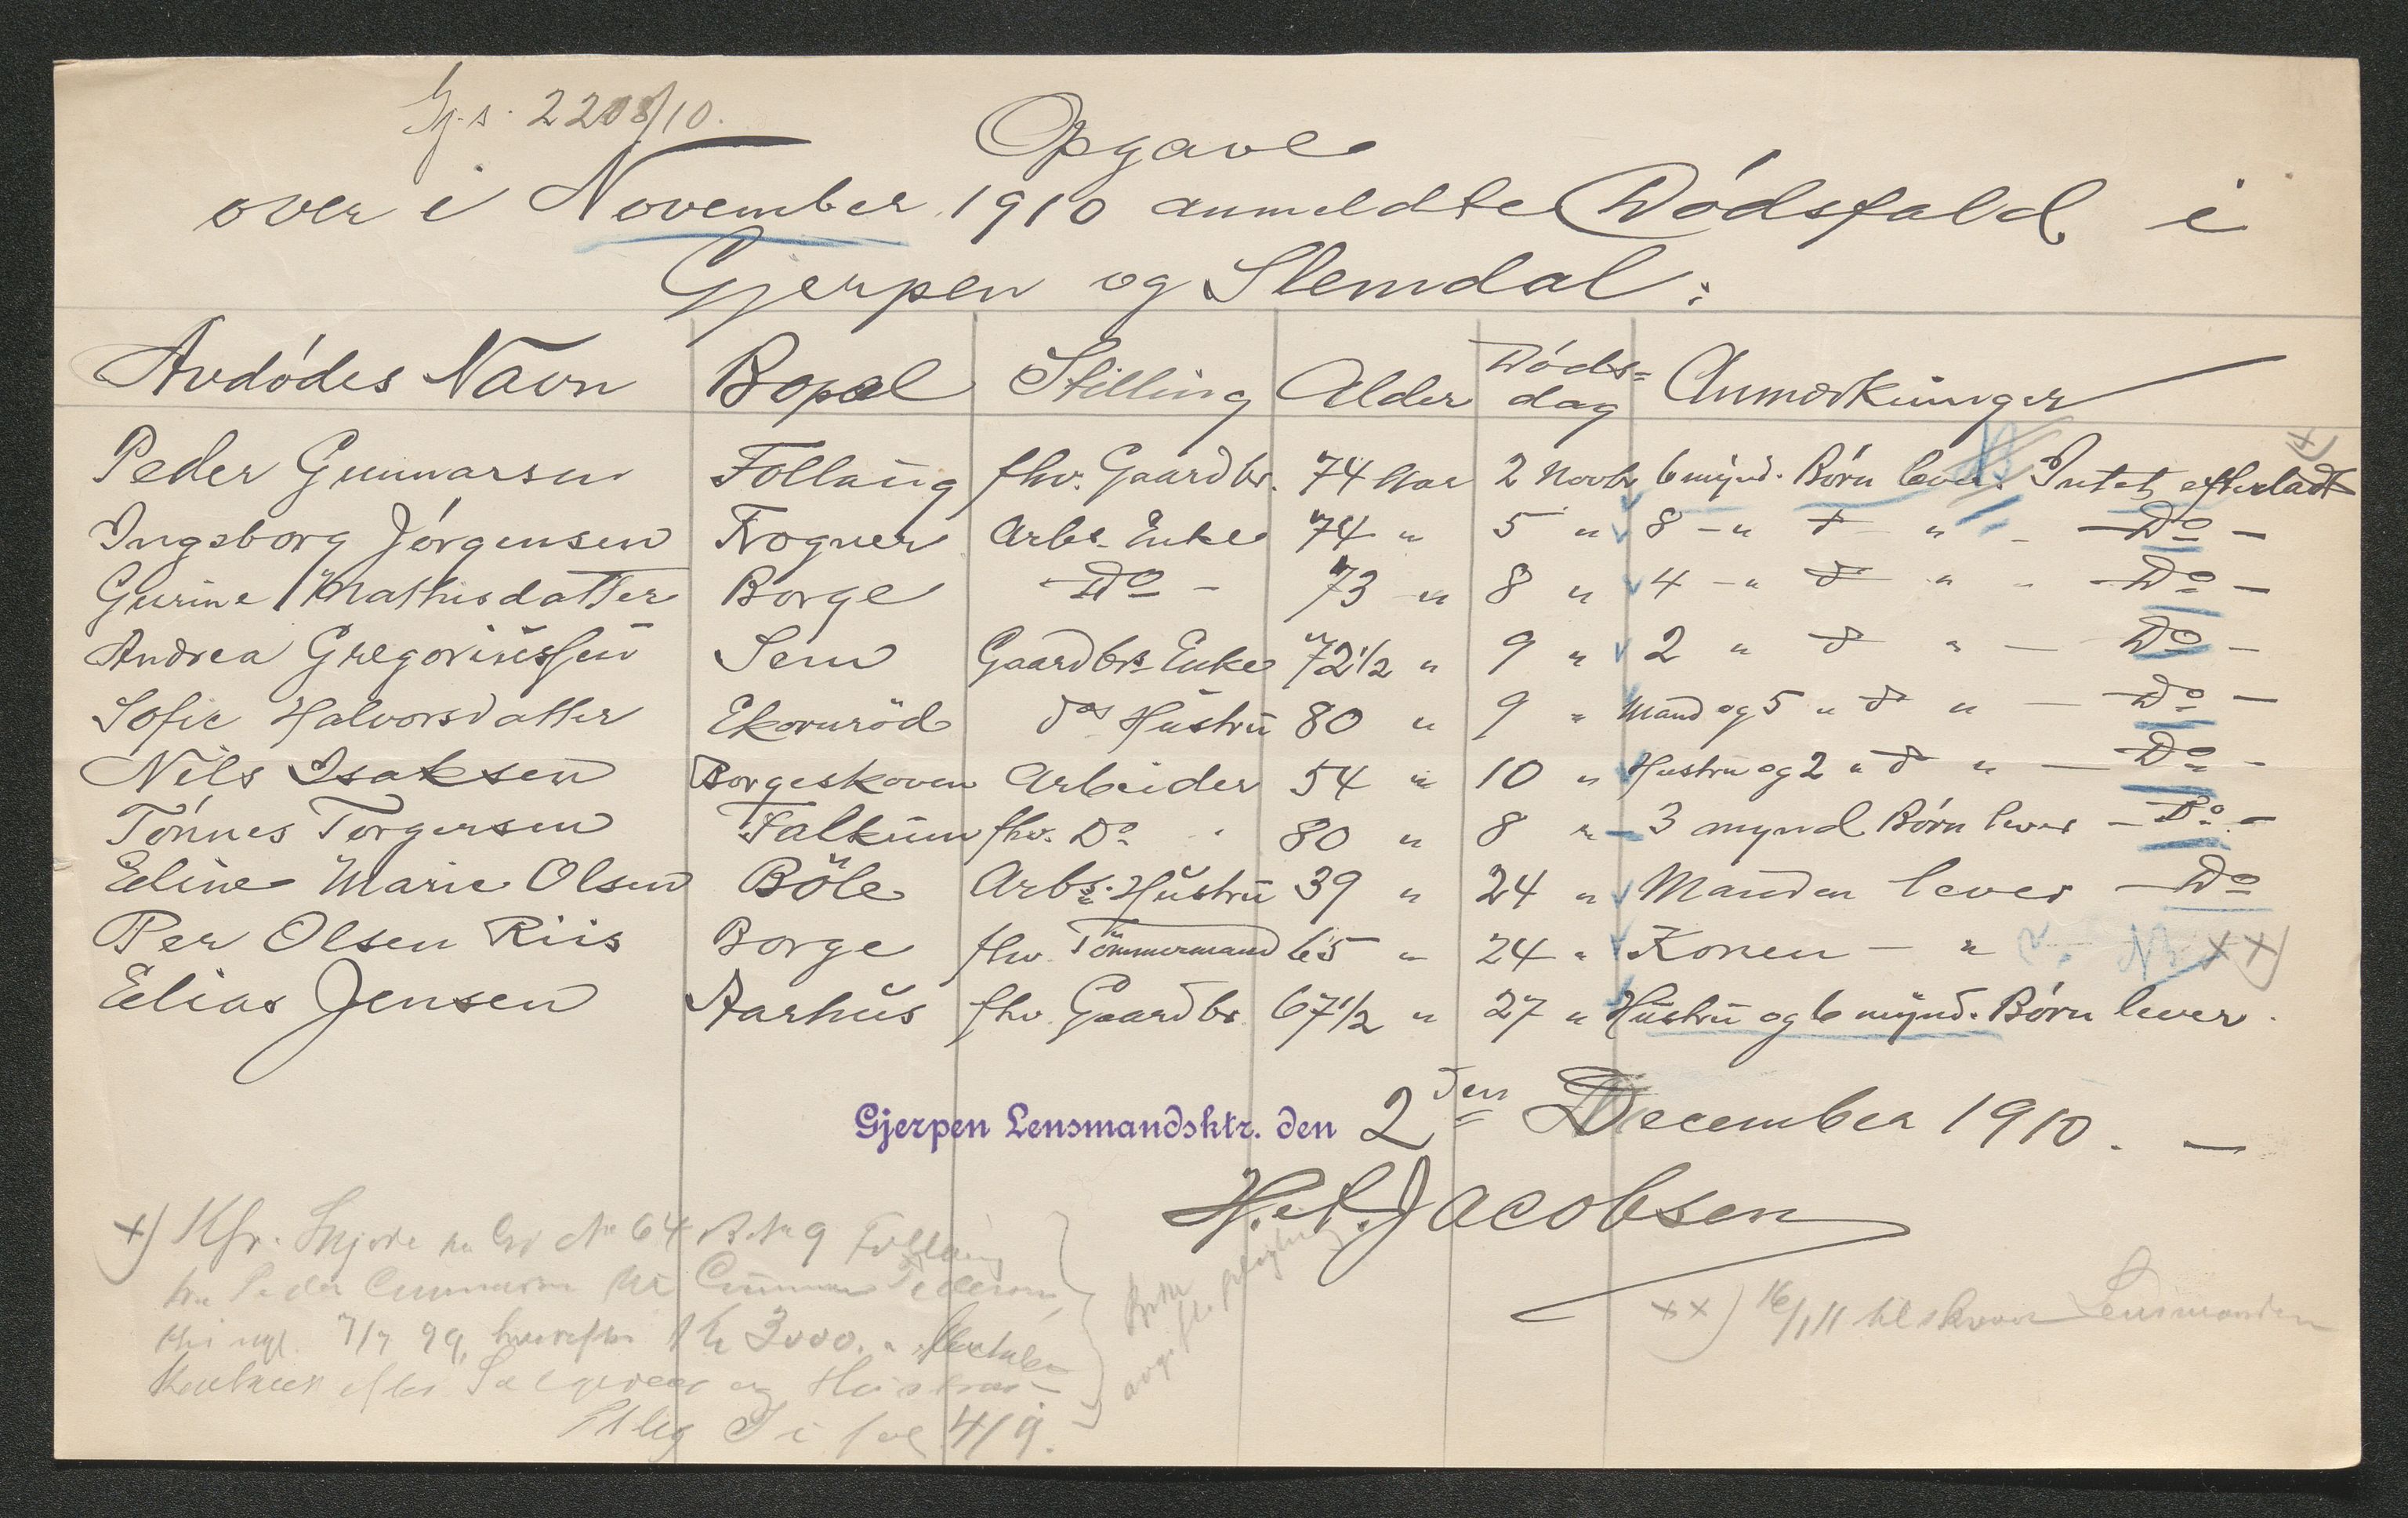 Gj.s. 2208/10.
Opgave
over i November 1910 anmeldte Dödsfald i
Gjerpen og Slemdal:
Avdödes Navn Bopæl Stilling Alder Döds=dag Anmerkninger
Peder Gunnarsen Follaug fhv. Gaardbr. 74 Aar 2 Novbr 6 mynd. Börn lever. Intet efterladt x)
Ingeborg Jörgensen Frogner Arbs. Enke 74 " 5 " 8 - " d " - Do -
Gurine Mathisdatter Borge - Do - 73 " 8 " 4 - " d " - Do -
Andrea Gregoriussen Sem Gaardbrs Enke 72 1/2 " 9 " 2 " d " - Do -
Sofie Halvorsdatter Ekornröd dos Hustru 80 " 9 " Mand og 5 " d " - Do -
Nils Isaksen Borgeskoven Arbeider 54 " 10 " Hustru og 2 " d " - Do -
Tönnes Torgersen Falkum fhv. Do 80 " 8 " - 3 mynd Börn lever - Do -
Eline Marie Olsen Böle Arbs. Hustru 39 " 24 " Manden lever - Do
Per Olsen Riis Borge fhv. Tömmermand 65 " 24 " Konen - " xx)
Elias Jensen Aarhus fhv. Gaardbr 67 1/2 " 27 " Hustru og 6 mynd. Börn lever.
Gjerpen Lensmandsktr. den 2den December 1910. -
H. A. Jacobsen
x) Kfr. Skjöte No 64 B.No 9 Follaug
fra Peder Gunnarsen til Gunnar Pedersen
7/7 99, kr 3000.
efter og Hustru
fol 419.
xx) 16/1 11 tilskrevet Lensmanden